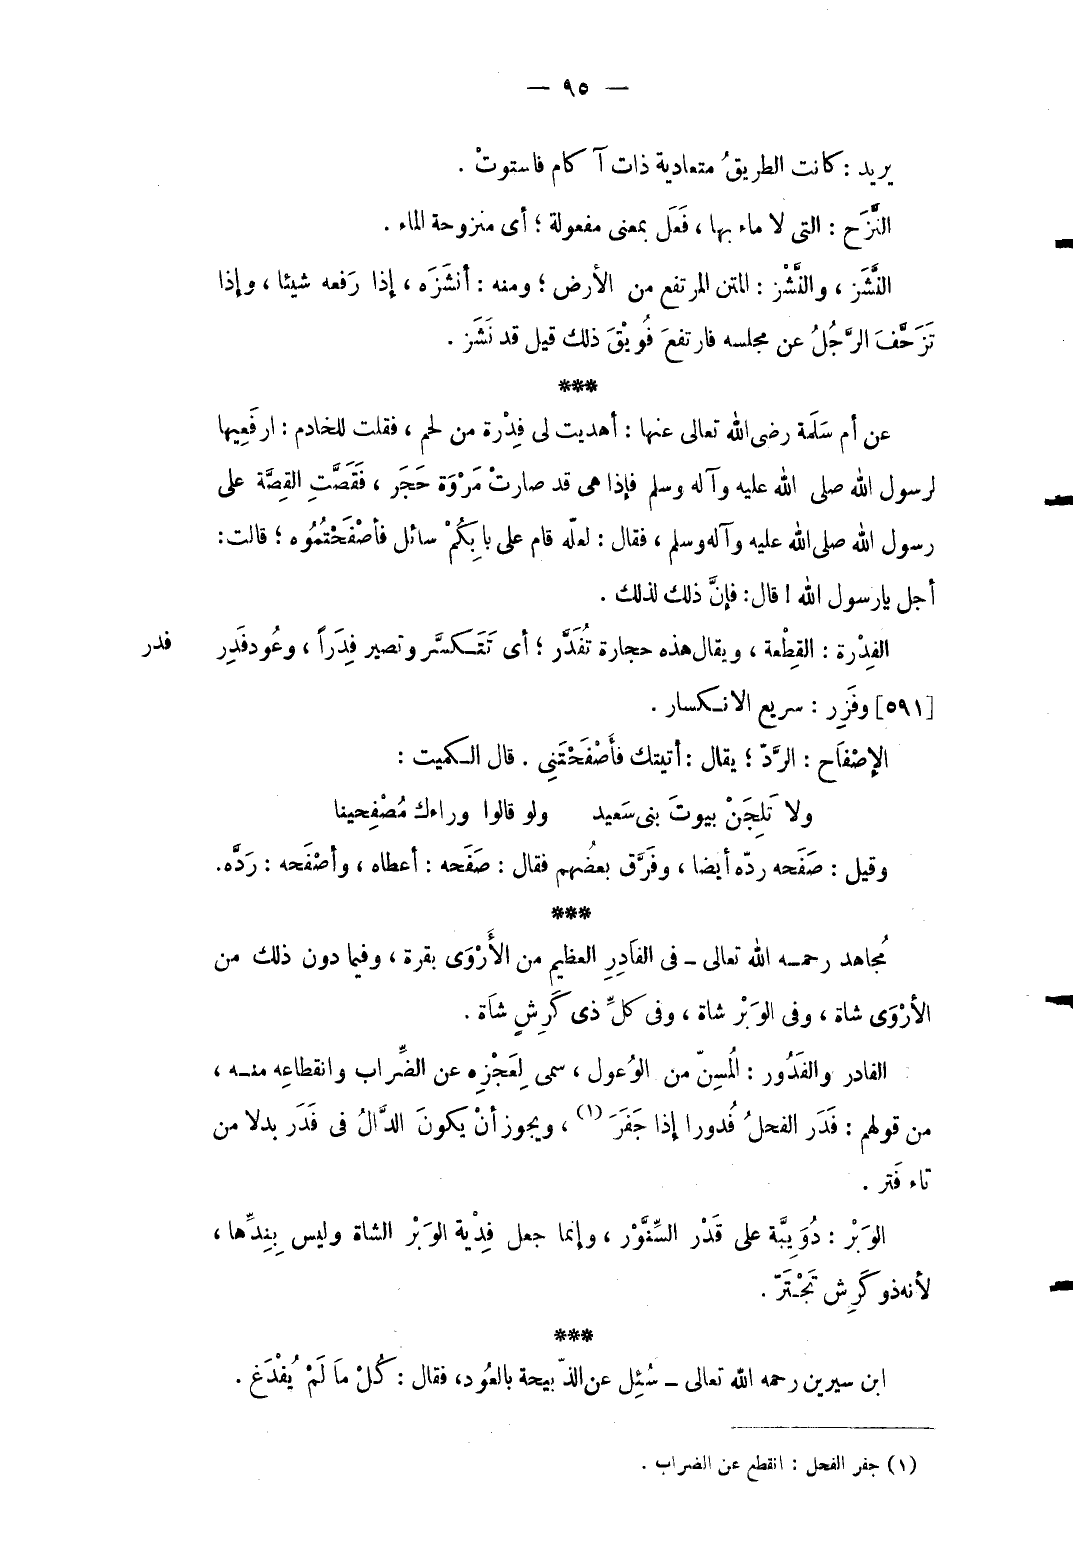 — ٩٥ —
يريد : كانت الطريقُ متعادية ذات آ كام فاستوتْ .
النَّزَح : التى لا ماء بها ، فَعَل بمعنى مفعولة ؛ أى منزوحة الماء .
النَّشَز ، والنَّشْز : المتن المرتفع من الأرض ؛ ومنه : أنشَزَه ، إذا رَفعه شيئا ، وإذا
تَزَحَّفَ الرَّجُلُ عن مجلسه فارتفعَ فُوَيْقَ ذلك قيل قد نَشَز .
***
عن أم سَلَمة رضى الله تعالى عنها : أهديت لى فِدْرة من لحم ، فقلت للخادم : ارفَعِيها
لرسول الله صلى الله عليه وآله وسلم فإذا هى قد صارتْ مَرْوَة حَجَر ، فَقَصَّتِ القِصَّة على
رسول الله صلى الله عليه وآله وسلم ، فقال : لعلّه قام على بابِكُمْ سائل فأصْفَحْتُمُوه ؛ قالت :
أجل يارسول الله ! قال : فإنَّ ذلك لذلك .
الفِدْرة : القِطْعة ، ويقال هذه حجارة تُفَدَّر ؛ أى تَتَكسَّر وتصير فِدَراً ، وعُود فَدِر فدر
[٥٩١] وفَزِر : سريع الانكسار .
الإصْفاح : الرَّدّ ؛ يقال : أتيتك فأَصْفَحْتَنِى . قال الكميت :
ولا تَلِجَنْ بيوتَ بنى سَعيد ولو قالوا وراءك مُصْفِحينا
وقيل : صَفَحه ردّه أيضا ، وفَرَّق بعضُهم فقال : صَفَحه : أعطاه ، وأصْفَحه : رَدَّه.
***
مُجاهد رحمه الله تعالى ـ فى الفَادِرِ العظيمِ من الأَرْوَى بقرة ، وفيما دون ذلك من
الأرْوَى شاة ، وفى الوَبْر شاة ، وفى كلِّ ذى كَرِشٍ شاَة .
الفادر والفَدُور : المُسِنّ من الوُعول ، سمى لِعَجْزِه عن الضِّراب وانقطاعِه منه ،
من قولهم : فَدَر الفحلُ فُدورا إذا جَفَرَ (١) ، ويجوز أنْ يكونَ الدَّالُ فى فَدَر بدلا من
تاء فَتَر .
الوَبْر : دُوَيِبَّة على قَدْر السِّنَّوْر ، وإنما جعل فِدْية الوَبْر الشاة وليس بِنِدِّها ،
لأنه ذو كَرِش تَجْتَرّ .
***
ابن سيرين رحمه الله تعالى ـ سُئِل عن الذّبيحة بالعُود، فقال : كُلْ ماَ لَمْ يُفْدَغ .
(١) جفر الفحل : انقطع عن الضراب .